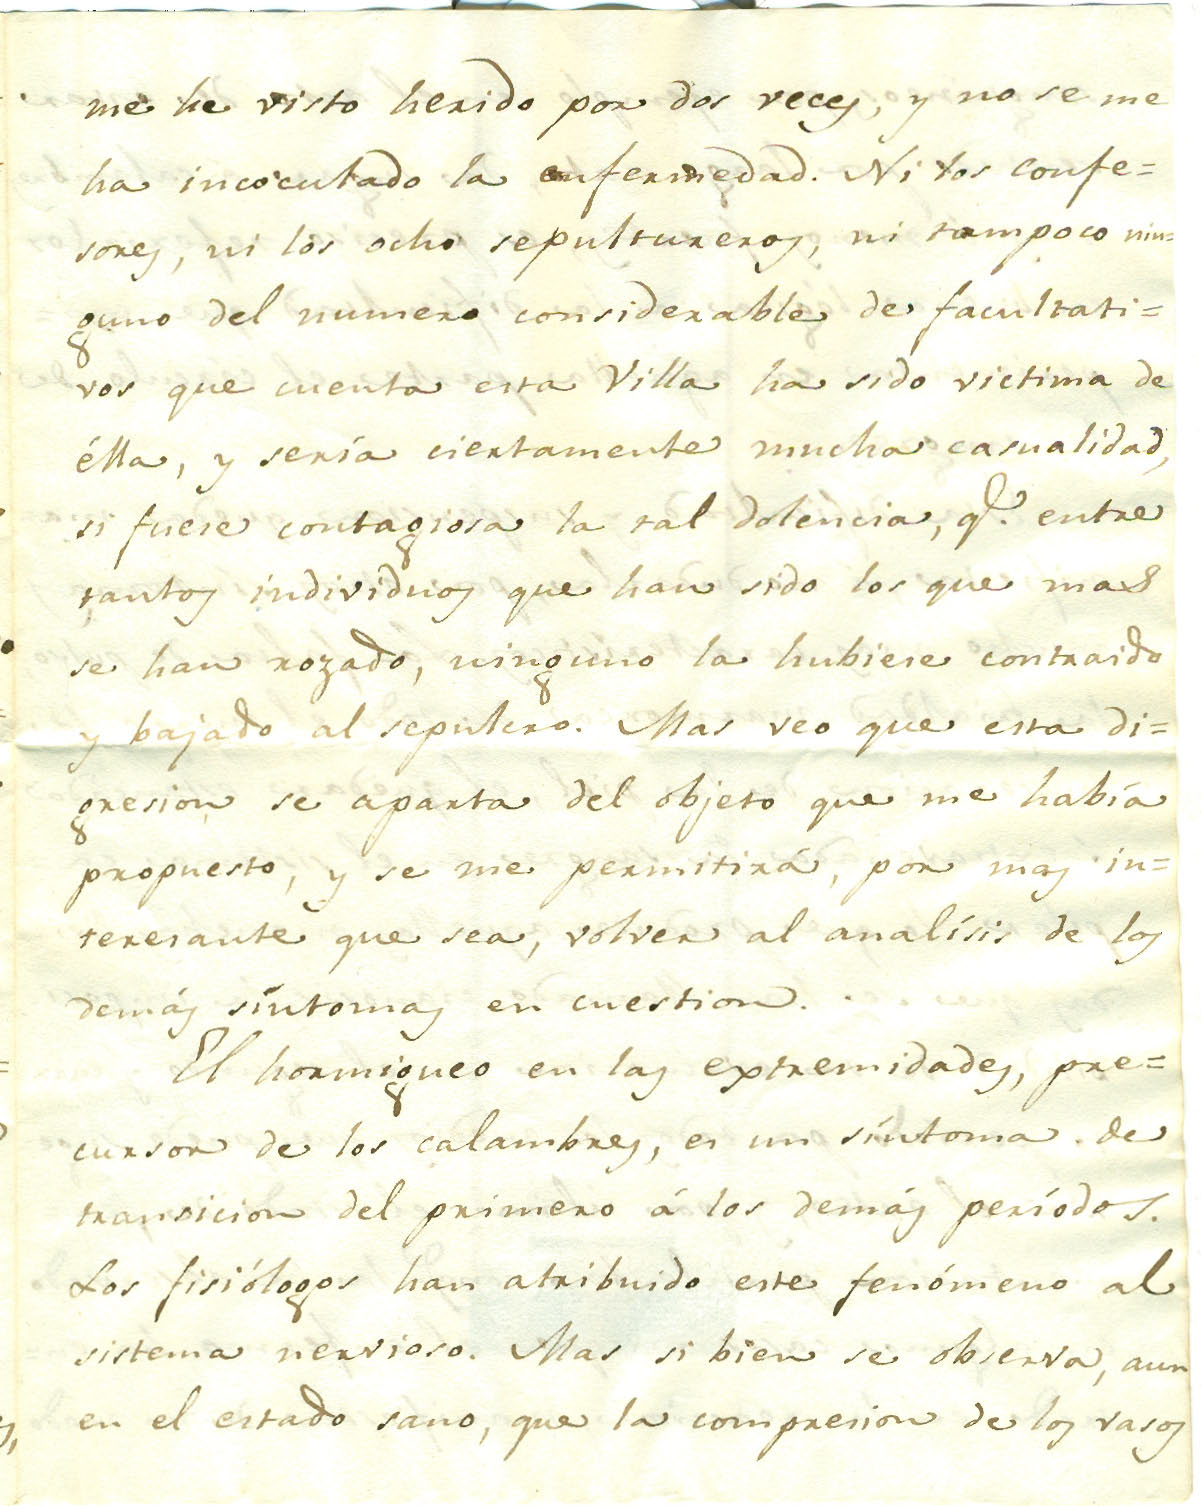 me he visto herido por dos veces, y no se me
ha incoculado la enfermedad. Ni los confe=
sores, ni los ocho sepultureros, ni tampoco nin=
guno del numero considerable de facultati=
vos que cuenta esta Villa ha sido victima de
élla, y sería ciertamente mucha casualidad,
si fuese contagiosa la tal dolencia, q.e entre
tantos individuos que han sido los que mas
se han rozado, ninguno la hubiese contraido
y bajado al sepulcro. Mas veo que esta di=
gresion se aparta del objeto que me había
propuesto, y se me permitirá, por mas in=
teresante que sea, volver al analísis de los
demás síntomas en cuestion.
El hormigueo en las extremidades, pre=
cursor de los calambres, es un síntoma de
transicion del primero á los demás períodos.
Los fisiólogos han atribuido este fenómeno al
sistema nervioso. Mas si bien se observa, aun
en el estado sano, que la compresion de los vasos